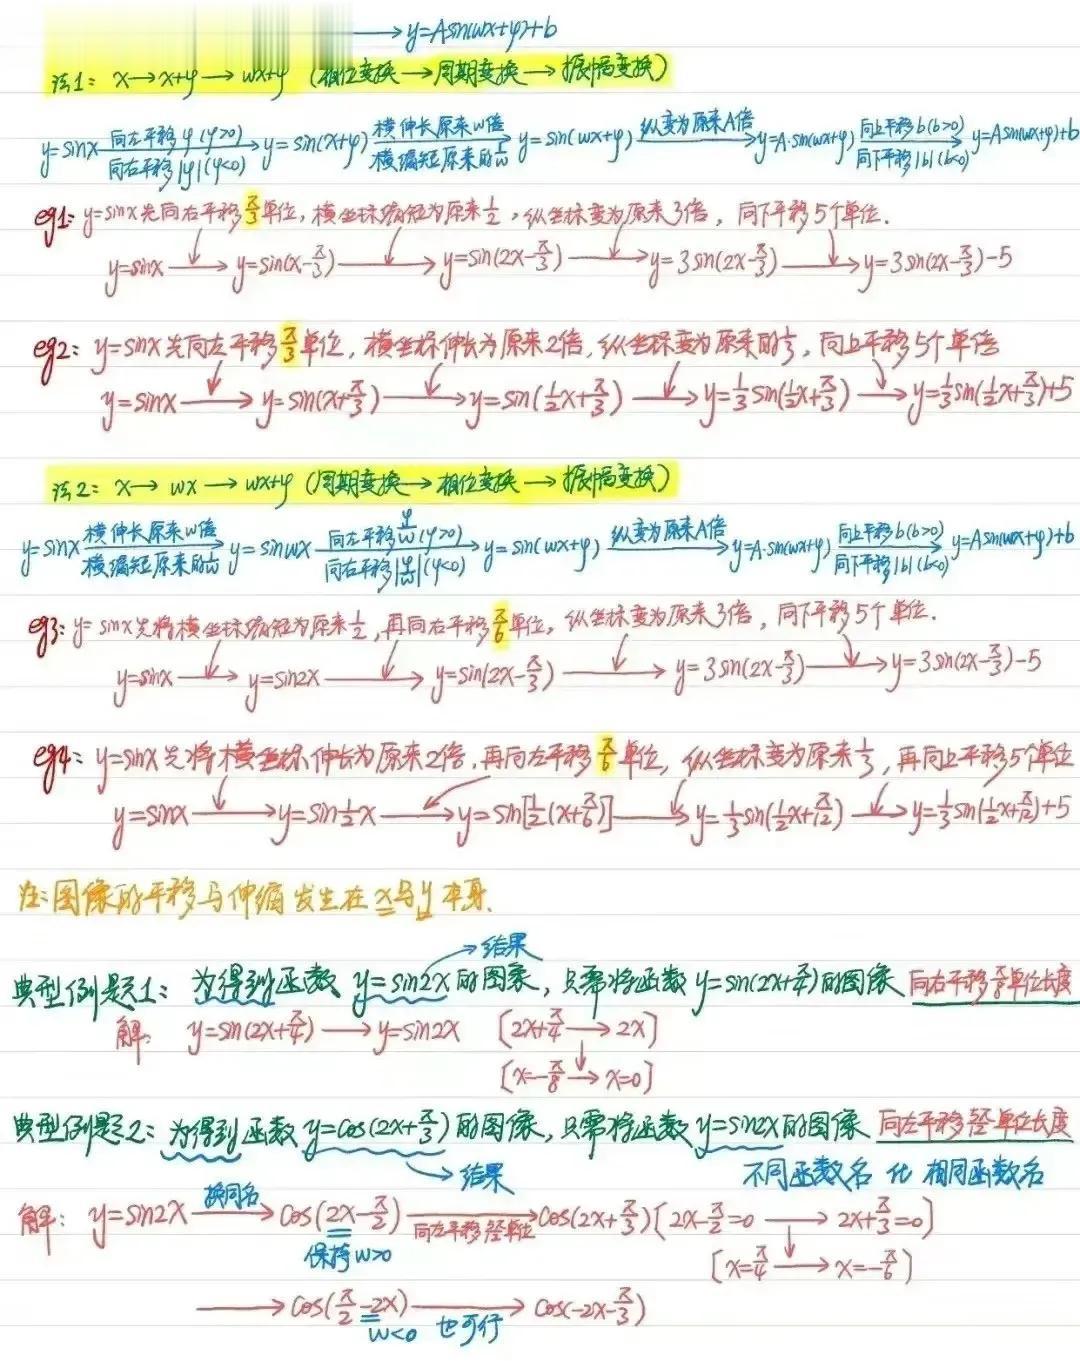 y=Asin(wx+φ)+b
法1: x→x+φ→wx+φ (相位变换→周期变换→振幅变换)
y=sinx 向左平移φ(φ>0) 向右平移|φ|(φ<0) y=sin(x+φ) 横伸长原来w倍 横缩短原来的1/w y=sin(wx+φ) 纵变为原来A倍 y=A·sin(wx+φ) 向上平移b(b>0) 向下平移|b|(b<0) y=Asin(wx+φ)+b
eg1: y=sinx先向右平移π/3单位, 横坐标缩短为原来1/2, 纵坐标变为原来3倍, 向下平移5个单位.
y=sinx→y=sin(x-π/3)→y=sin(2x-π/3)→y=3sin(2x-π/3)→y=3sin(2x-π/3)-5
eg2: y=sinx先向左平移π/3单位, 横坐标伸长为原来2倍, 纵坐标变为原来的1/3, 向上平移5个单倍
y=sinx→y=sin(x+π/3)→y=sin(1/2x+π/3)→y=1/3sin(1/2x+π/3)→y=1/3sin(1/2x+π/3)+5
法2: x→wx→wx+φ (周期变换→相位变换→振幅变换)
y=sinx 横伸长原来w倍 横缩短原来的1/w y=sinwx 向左平移φ/w(φ>0) 向右平移|φ/w|(φ<0) y=sin(wx+φ) 纵变为原来A倍 y=A·sin(wx+φ) 向上平移b(b>0) 向下平移|b|(b<0) y=Asin(wx+φ)+b
eg3: y=sinx先将横坐标缩短为原来1/2, 再向右平移π/6单位, 纵坐标变为原来3倍, 向下平移5个单位.
y=sinx→y=sin2x→y=sin(2x-π/3)→y=3sin(2x-π/3)→y=3sin(2x-π/3)-5
eg4: y=sinx先将横坐标伸长为原来2倍, 再向左平移π/6单位, 纵坐标变为原来1/3, 再向上平移5个单位
y=sinx→y=sin1/2x→y=sin[1/2(x+π/6)]→y=1/3sin(1/2x+π/12)→y=1/3sin(1/2x+π/12)+5
注:图像的平移与伸缩发生在x与y本身.
→结果
典型例题1: 为得到函数y=sin2x的图象, 只需将函数y=sin(2x+π/4)的图像 向右平移π/8单位长度
解: y=sin(2x+π/4)→y=sin2x [2x+π/4→2x]
[x=-π/8→x=0]
典型例题2: 为得到函数y=cos(2x+π/3)的图像, 只需将函数y=sin2x的图像 向左平移5π/12单位长度
→结果 不同函数名 化 相同函数名
解: y=sin2x 换同名→cos(2x-π/2) 向左平移5π/12单位→cos(2x+π/3) [2x-π/2=0→2x+π/3=0]
保持w>0 [x=π/4→x=-π/6]
→cos(π/2-2x)→cos(-2x-π/3)
w<0 也可行